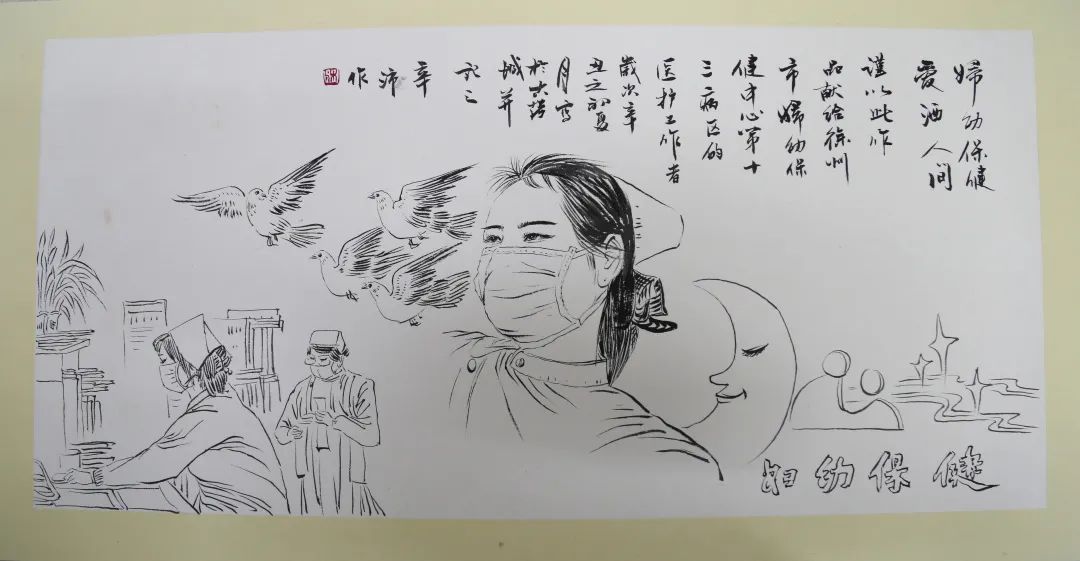 婦幼保健
愛洒人间
谨以此作
品献给徐州
市婦幼保
健中心第十
三病区的
医护工作者
歲次辛
丑之初夏
月寫
於古彭
城并
記之
辛
沛
作
妇幼保健